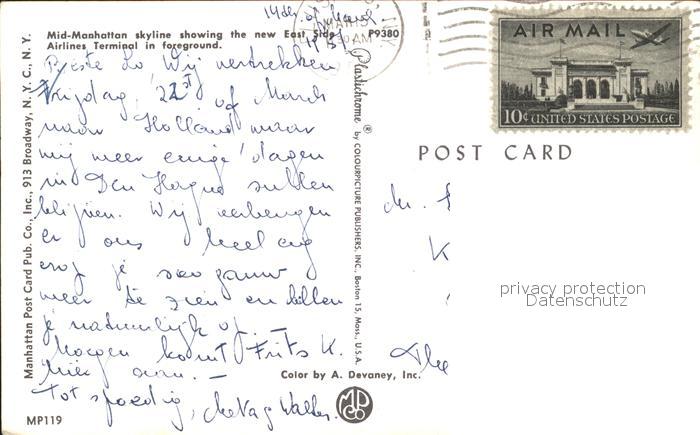 14de of March
1957
Mid-Manhattan skyline showing the new East Side P9380
Airlines Terminal in foreground.
Beste Lo Wij vertrekken
Vrijdag, 22st of March
naar Holland waar
wij weer enige dagen
in Den Haag zullen
blijven. Wij verheugen
er ons heel erg
je zeer gauw
weer te zien en bellen
je natuurlijk op. —
Morgen komt Frits K.
hier
Tot spoedig,
Manhattan Post Card Pub. Co., Inc., 913 Broadway, N. Y. C., N. Y.
MP119
Plastichrome ® by COLOURPICTURE PUBLISHERS, INC., Boston 15, Mass., U.S.A.
Color by A. Devaney, Inc.
MPCO
AIR MAIL
10¢ UNITED STATES POSTAGE
POST CARD
K
privacy protection
Datenschutz